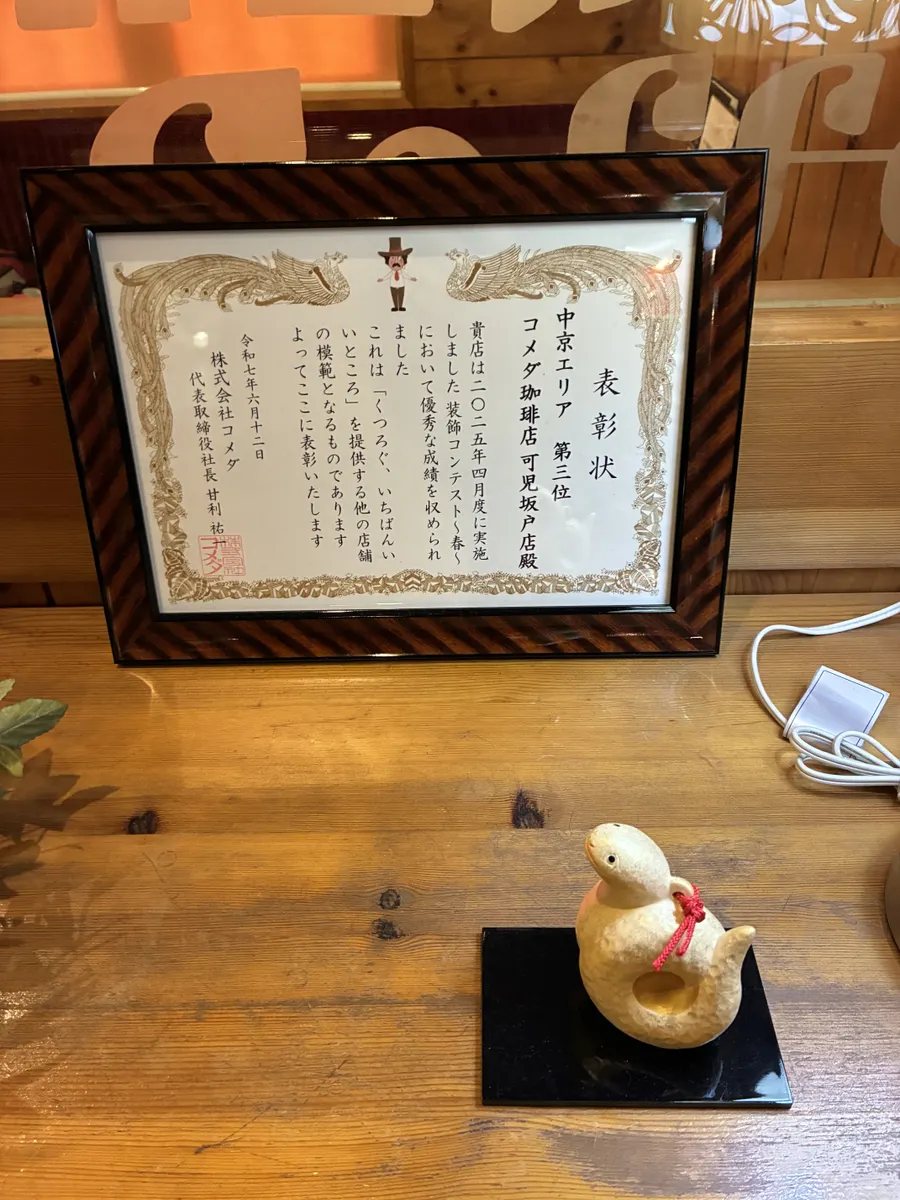 Coff
表彰状
中京エリア 第三位
コメダ珈琲店 可児坂戸店殿
貴店は二〇二五年四月度に実施
しました 装飾コンテスト～春～
において優秀な成績を収められ
ました
これは「くつろぐ、いちばんい
いところ」を提供する他の店舗
の模範となるものであります
よってここに表彰いたします
令和七年六月十二日
株式会社コメダ
代表取締役社長 甘利 祐一